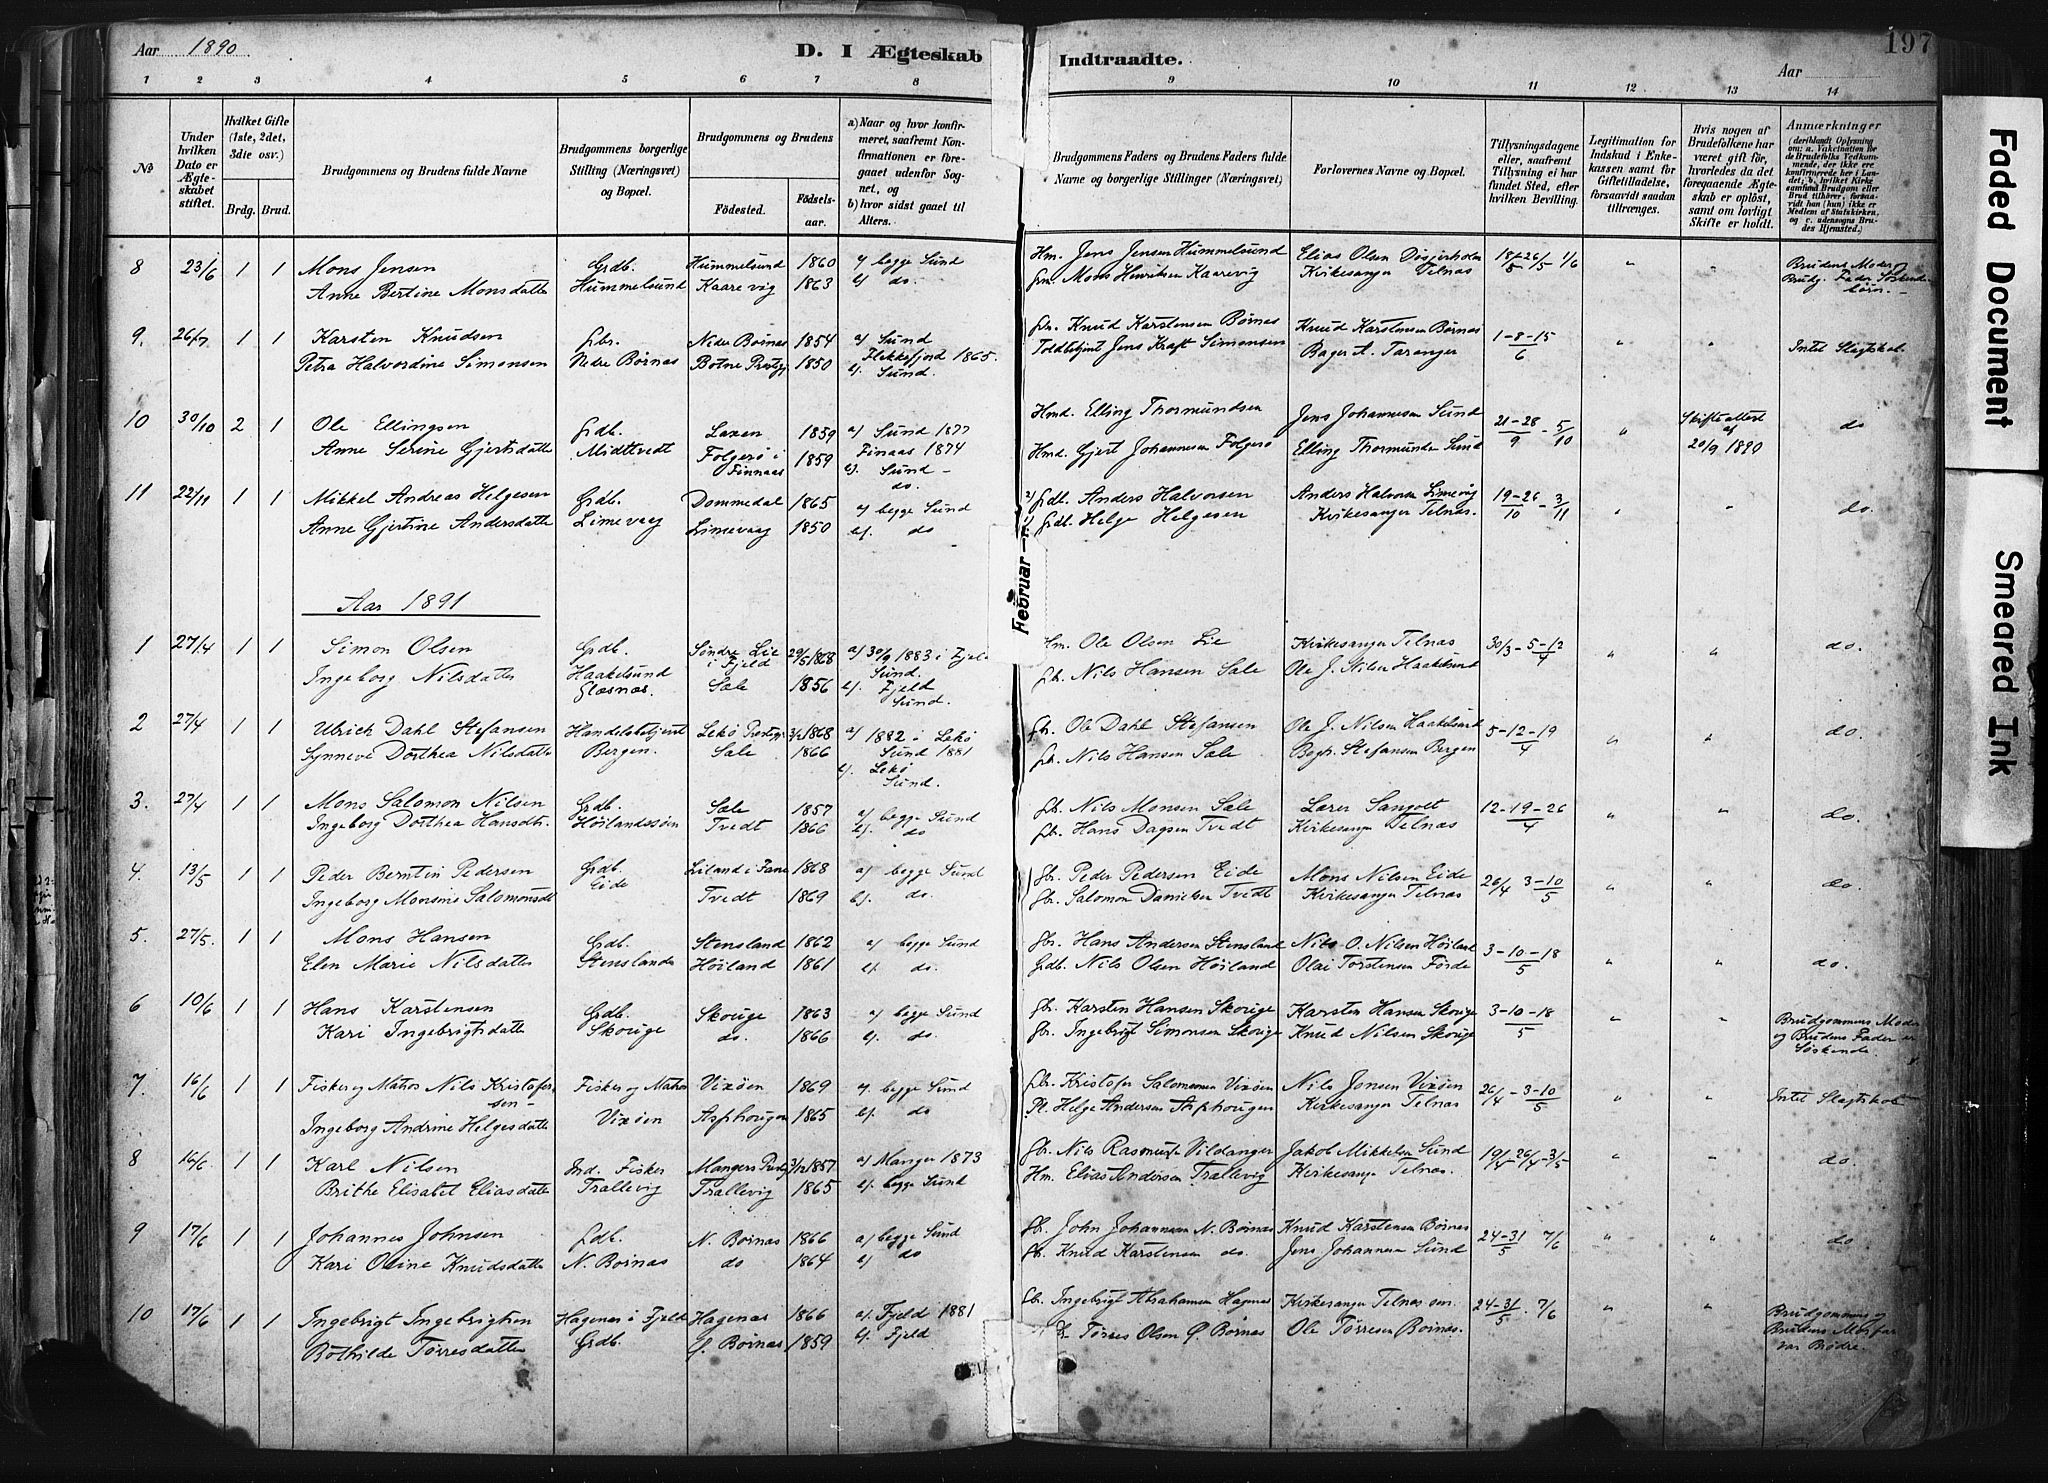 Aar 1890
D. I Ægteskab Indtraadte.
197
Aar
1 2 3 4 5 6 7 8 9 10 11 12 13 14
No
Under hvilken Dato er Ægteskabet stiftet.
Hvilket Gifte (1ste, 2det, 3die osv.)
Brdg. Brud.
Brudgommens og Brudens fulde Navne
Brudgommens borgerlige Stilling (Næringsvei) og Bopæl.
Brudgommens og Brudens
Fødested. Fødselsaar.
a) Naar og hvor konfirmeret, saafremt Konfirmationen er foregaaet udenfor Sognet, og
b) hvor sidst gaaet til Alters.
Brudgommens Faders og Brudens Faders fulde Navne og borgerlige Stillinger (Næringsvei)
Forlovernes Navne og Bopæl.
Tillysningsdagene eller, saafremt Tillysning ei har fundet Sted, efter hvilken Bevilling.
Legitimation for Indskud i Enkekassen samt for Giftetilladelse, forsaavidt saadan tiltrænges.
Hvis nogen af Brudefolkene har været gift før, hvorledes da det foregaaende Ægteskab er opløst, samt om lovligt Skifte er holdt.
Anmærkninger (deriblandt Oplysning om: a. Vakcination for de Brudefolks Vedkommende, der ikke ere konfirmerede her i Landet; b. hvilket Kirkesamfund Brudgom eller Brud tilhører, forsaavidt han (hun) ikke er Medlem af Statskirken, og c. udensogns Brudes Hjemsted.)
8 23/6 1 1 Mons Jensen Grdb. Hummelsund 1860 a) begge Sund Hm. Jens Jensen Hummelsund Elias Olsen 18/5-26/5 1/6 " " Brudens Moder og
Anne Bertine Monsdatter Hummelsund Kaarevig 1863 b) do. Grm. Mons Henriksen Kaarevig Kirkesanger Telnæs Brudg. Fader Søskendebørn.
9. 26/7 1 1 Karsten Knudsen Gbr. Nedre Børnæs 1854 a) Sund Gbr. Knud Karstensen Børnæs Knud Karstensen Børnæs 1-8-15/6 " " Intet Slægtskab.
Petra Halvordine Simonsen Nedre Børnæs Botne Prestgj. 1850 Flekkefjord 1865. b). Sund. Toldbetjent Jens Kraft Simonsen Bager A. Taranger
10 30/10 2 1 Ole Ellingsen Grdb. Laxen 1859 a) Sund 1877 Hmd. Elling Thormundsen Jens Johannesen Sund 21-28/9 - 5/10 " Skifteattest af 20/9 1890 do
Anne Serine Gjertsdatter Midttvedt Folgerø i Finnaas 1859 Finaas 1874 b). Sund - do. Hmd. Gjert Johannesen Folgerø Elling Thormundsen Sund
11 22/11 1 1 Mikkel Andreas Helgesen Grdb. Dommedal 1865 a) begge Sund 2) Grdb. Anders Halvorsen Anders Halvorsen Limevig 19-26/10 - 3/11 " " do.
Anne Gjertine Andersdatter Limevaag Limevaag 1850 b). do 1) Grdb. Helge Helgesen Kirkesanger Telnæs.
Aar 1891
Februar
1 27/4 1 1 Simon Olsen Grdb. Søndre Lie i Fjeld 29/5 1868 a) 30/9 1883 i Fjeld Hm. Ole Olsen Lie Kirkesanger Telnæs 30/3-5-12/4 " " do.
Ingeborg Nilsdatter Haakelsund Glæsnæs. Sæle 1856 Sund. b). Fjeld Sund. Gb. Nils Hansen Sæle Ole J. Nilsen Haakelsund
2 27/4 1 1 Ulrich Dahl Stefansen Handelsbetjent Lekø Prestgj. 3/2 1868 a) 1882 i Lekø Gb. Ole Dahl Stefansen Ole J. Nilsen Haakelsund 5-12-19/4 " " do.
Synneve Dorthea Nilsdatter Bergen. Sæle 1866 Sund 1881 b). Lekø Sund. Gb. Nils Hansen Sæle Bogh. Stefansen Bergen
3. 27/4 1 1 Mons Salomon Nilsen Grdb. Sæle 1857 a) begge Sund Gb. Nils Monsen Sæle Lærer Sangolt 12-19-26/4 " " do.
Ingeborg Dorthea Hansdtr. Høilandssjøen Tvedt 1866 b). do Gb. Hans Dagsen Tvedt Kirkesanger Telnæs
4. 13/5 1 1 Peder Berntin Pedersen Grdb. Liland i Fane 1868 a) begge Sund Gb. Peder Pedersen Eide Mons Nilsen Eide 26/4 3-10/5 " " do.
Ingeborg Monsine Salomonsdt Eide Tvedt 1869 b). do. Gb. Salomon Danielsen Tvedt Kirkesanger Telnæs
5. 27/5. 1 1 Mons Hansen Grdb. Stensland 1862 a) begge Sund Gbr. Hans Andersen Stensland Nils O. Nilsen Høiland 3-10-18/5 " " do.
Elen Marie Nilsdatter Stensland Høiland 1861 b). do. Grdb. Nils Olsen Høiland Olai Torstensen Förde
6 10/6 1 1 Hans Karstensen Grdb. Skouge 1863 a) begge Sund Gb. Karsten Hansen Skouge Karsten Hansen Skouge 3-10-18/5 " " Brudgommens Moder
Kari Ingebrigtsdatter Skouge do. 1866 b). do. Gb. Ingebrigt Simonsen Skouge Knud Nilsen Skouge og Brudens Fader er Søskende.
7. 16/6 1 1 Fisker og Matros Nils Kristofersen - Fisker og Matros Vixøen 1869 a). begge Sund Gbr. Kristofer Salomonsen Vixøen Nils Jensen Vixøen 26/4 - 3-10/5 " " Intet Slægtskab
Ingeborg Andrine Helgesdatter Vixøen Asphougen 1865 b). do Pl. Helge Andersen Asphougen Kirkesanger Telnæs
8 16/6. 1 1 Karl Nilsen Ind. Fisker Mangers Prestgj. 3/12 1857 a) Manger 1873 Gb. Nils Rasmusen Vildanger Jakob Mikkelsen Sund 19/4-26/4-3/5 " " do.
Brithe Elisabet Eliasdatter Trallevig Trallevig 1865 b). begge Sund Hm. Elias Andersen Trallevig Kirkesanger Telnæs.
9 17/6 1 1 Johannes Johnsen Grdb. N. Børnæs 1866 a) begge Sund Gb. John Johannesen N. Børnæs Knud Karstensen Børnæs 24-31/5 7/6 " " do
Kari Oline Knudsdatter N. Børnæs do 1864 b) do Gb. Knud Karstensen do. Jens Johannesen Sund
10 17/6 1 1 Ingebrigt Ingebrigtsen Hagenæs i Fjeld Hagenæs 1866 a). Fjeld 1881 Gb. Ingebrigt Abrahamsen Hagenæs Kirkesanger Telnæs sen. 24-31/5. 7/6 " " Brudgommens og
Bothilde Tørresdatter Grdb. Ø. Børnæs 1859 b). Fjeld Tørres Olsen Ø. Børnæs Ole Tørresen Børnæs. Brudens Morfar var Brødre.
Faded Document
Smeared Ink